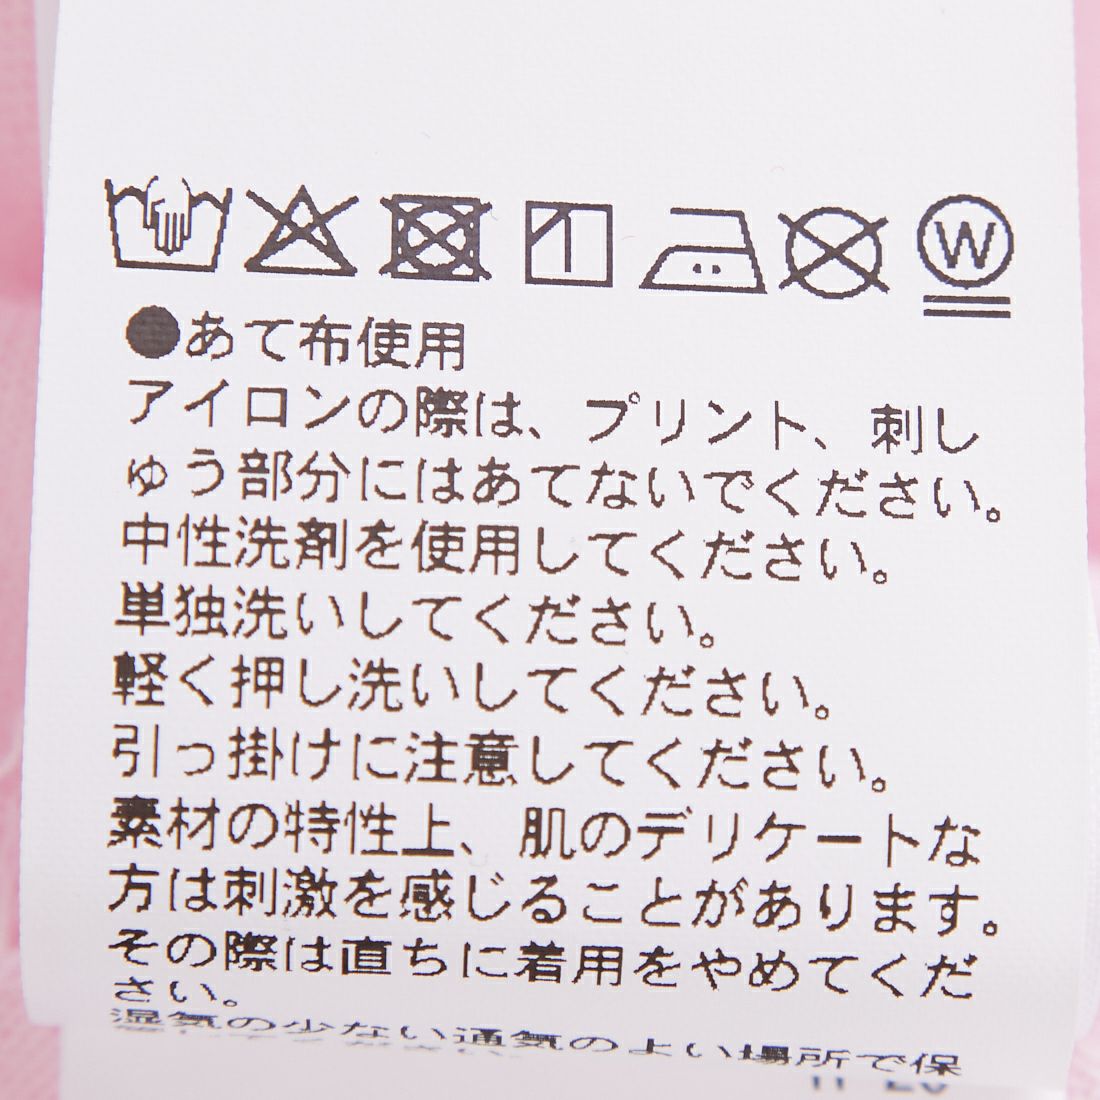 W
●あて布使用
アイロンの際は、プリント、刺し
ゅう部分にはあてないでください。
中性洗剤を使用してください。
単独洗いしてください。
軽く押し洗いしてください。
引っ掛けに注意してください。
素材の特性上、肌のデリケートな
方は刺激を感じることがあります。
その際は直ちに着用をやめてくだ
さい。
湿気の少ない通気のよい場所で保